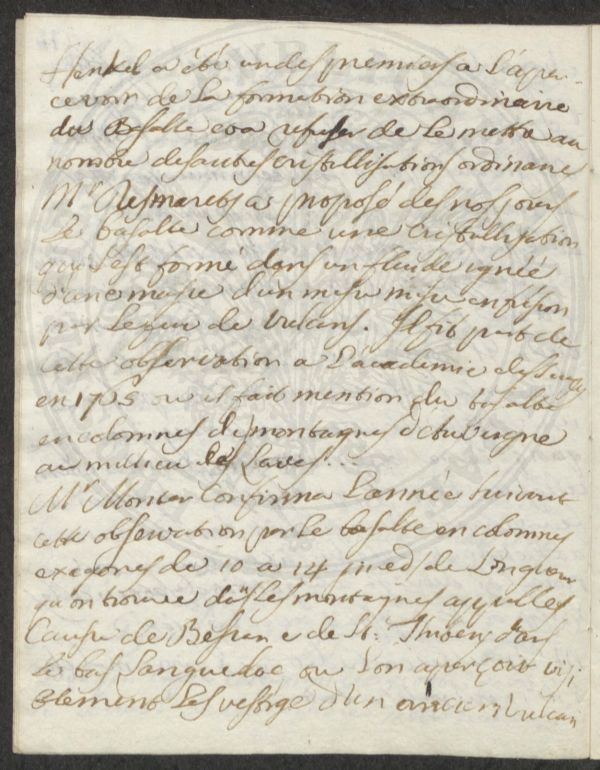 Henkel a été un des premiers a L'aper-
cevoir de La formation extraordinaire
du Basalte et a refuser de Le mettre au
nombre des autres Cristallisations ordinaire
Mr Desmarets a proposé de nos jours
Le basalte comme une Cristallisation
qui s'est formé dans un fluide ignée
d'une masse d'un mesu misu en fusion
par Le feu de Vulcans. Il fit part de
cette observation a L'academie des Sciences
en 1765 ou il fait mention du basalte
en colomnes des montagnes d'Auvergne
au milieu des Laves...
Mr Montet Confirma L'année suivant
cette observation par Le basalte en colomnes
exagones de 10 a 14 pieds de Longueur
qu'on trouve dans Les montagnes appellés
Causse de Basan e de St. Thibery dans
Le bas Languedoc ou L'on aperçoit visi
blement Les vestige d'un ancien Vulcan